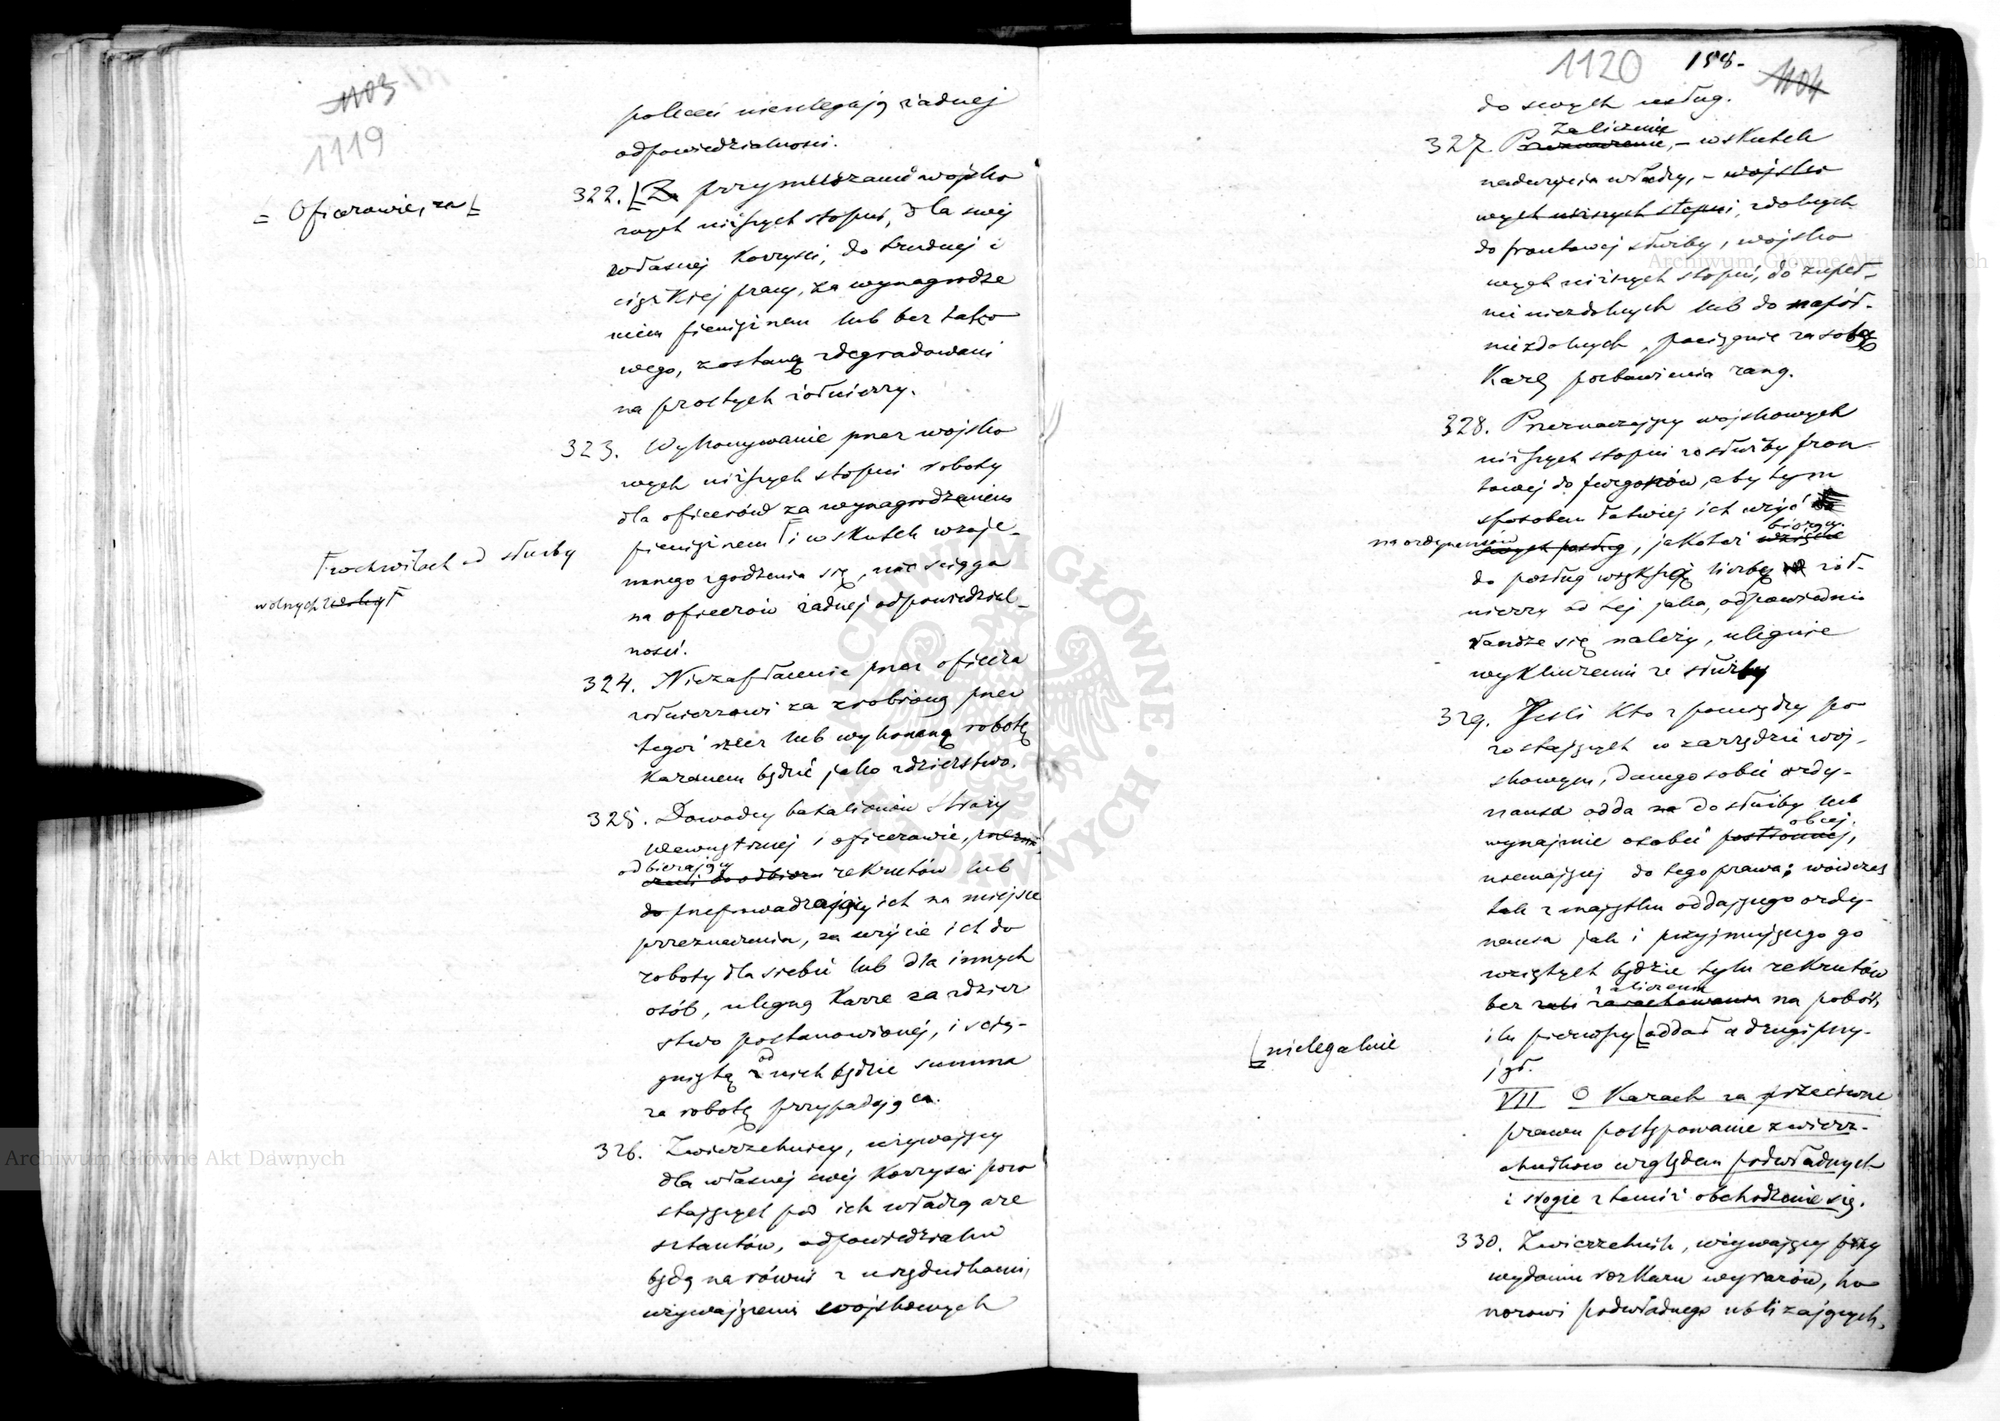 1103
1119
poleceń nieulegają żadnej
odpowiedzialnosci.
322. Za przymuszanie wojsko
= Oficerowie, za
wych niższych stopni, dla swej
własnej korzyści, do trudnej i
ciężkiej pracy, za wynagrodze
niem pieniężnem lub bez tako
wego, zostaną zdegradowani
na prostych żołnierzy.
323. Wykonywanie przez wojsko
wych niższych stopni roboty
dla oficerów za wynagrodzeniem
pieniężnem i wskutek wzaje-
w chwilach od służby
wolnych
mnego zgodzenia się, nie ściąga
na oficerów żadnej odpowiedzial-
ności.
324. Niezapłacenie przez oficera
żołnierzowi za zrobioną przez
tegoż rzecz lub wykonaną robotę
karanem będzie jako zdzierstwo.
325. Dowódcy batalionów Straży
wewnętrznej i oficerowie,
odbierający
rekrutów lub
do przeprowadzający ich na miejsce
przeznaczenia, za użycie ich do
roboty dla siebie lub dla innych
osób, ulegną karze za zdzier
stwo postanowionej, i ścią-
gniętą od nich będzie summa
za robotę przypadająca.
326. Zwierzchnicy, używający
dla własnej swej korzyści pozo
stających pod ich władzą are
sztantów, odpowiedzialni
będą na równi z urzędnikami,
używającemi wojskowych
1120 158. 1104
do swych usług.
Zaliczenie
327. Przeznaczenie, – wskutek
nadużycia władzy, – wojsko
wych niższych stopni, zdolnych
do frontowej służby, wojsko
wych niższych stopni, do zupeł-
nie niezdolnych lub do napół-
niezdolnych, pociągnie za sobą
karę pozbawienia rang.
328. Przeznaczający wojskowych
niższych stopni ze służby fron
towej do furgonów, aby tym
sposobem łatwiej ich użyć
na ordynansów swych posług, jakoteż biorący
do posług większą liczbę żoł-
nierzy od tej jaka, odpowiednio
randze się należy, ulegnie
wykluczeniu ze służby
329. Jeśli kto z pomiędzy po
zostających w zarządzie woj-
skowym, danego sobie ordy-
nansa odda do służby lub
obcej,
wynajmie osobie postronnej,
niemającej do tego prawa; wówczas
tak z majątku oddającego ordy-
nansa jak i przyjmującego go
wziętych będzie tylu rekrutów
zaliczenia
bez zarachowania na pobór,
ilu pierwszy oddał a drugi przy-
nielegalnie
jął.
VII O Karach za przeciwne
prawu postępowanie zwierz-
chników względem podwładnych
i srogie z temiż obchodzenie się.
330. Zwierzchnik, używający przy
wydaniu rozkazu wyrazów, ho
norowi podwładnego ubliżających,
Archiwum Główne Akt Dawnych
Archiwum Główne Akt Dawnych
ARCHIWUM GŁÓWNE AKT DAWNYCH